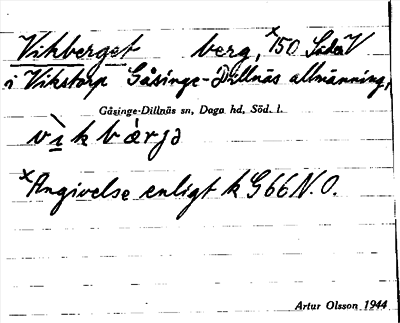 Vikberget berg, ×150 Söder V
i Vikstorp Gåsinge-Dillnäs allmänning,
Gåsinge-Dillnäs sn, Daga hd, Söd. l.
vìkbærjə
×Angivelse enligt k G66 N.O.
Artur Olsson 1944